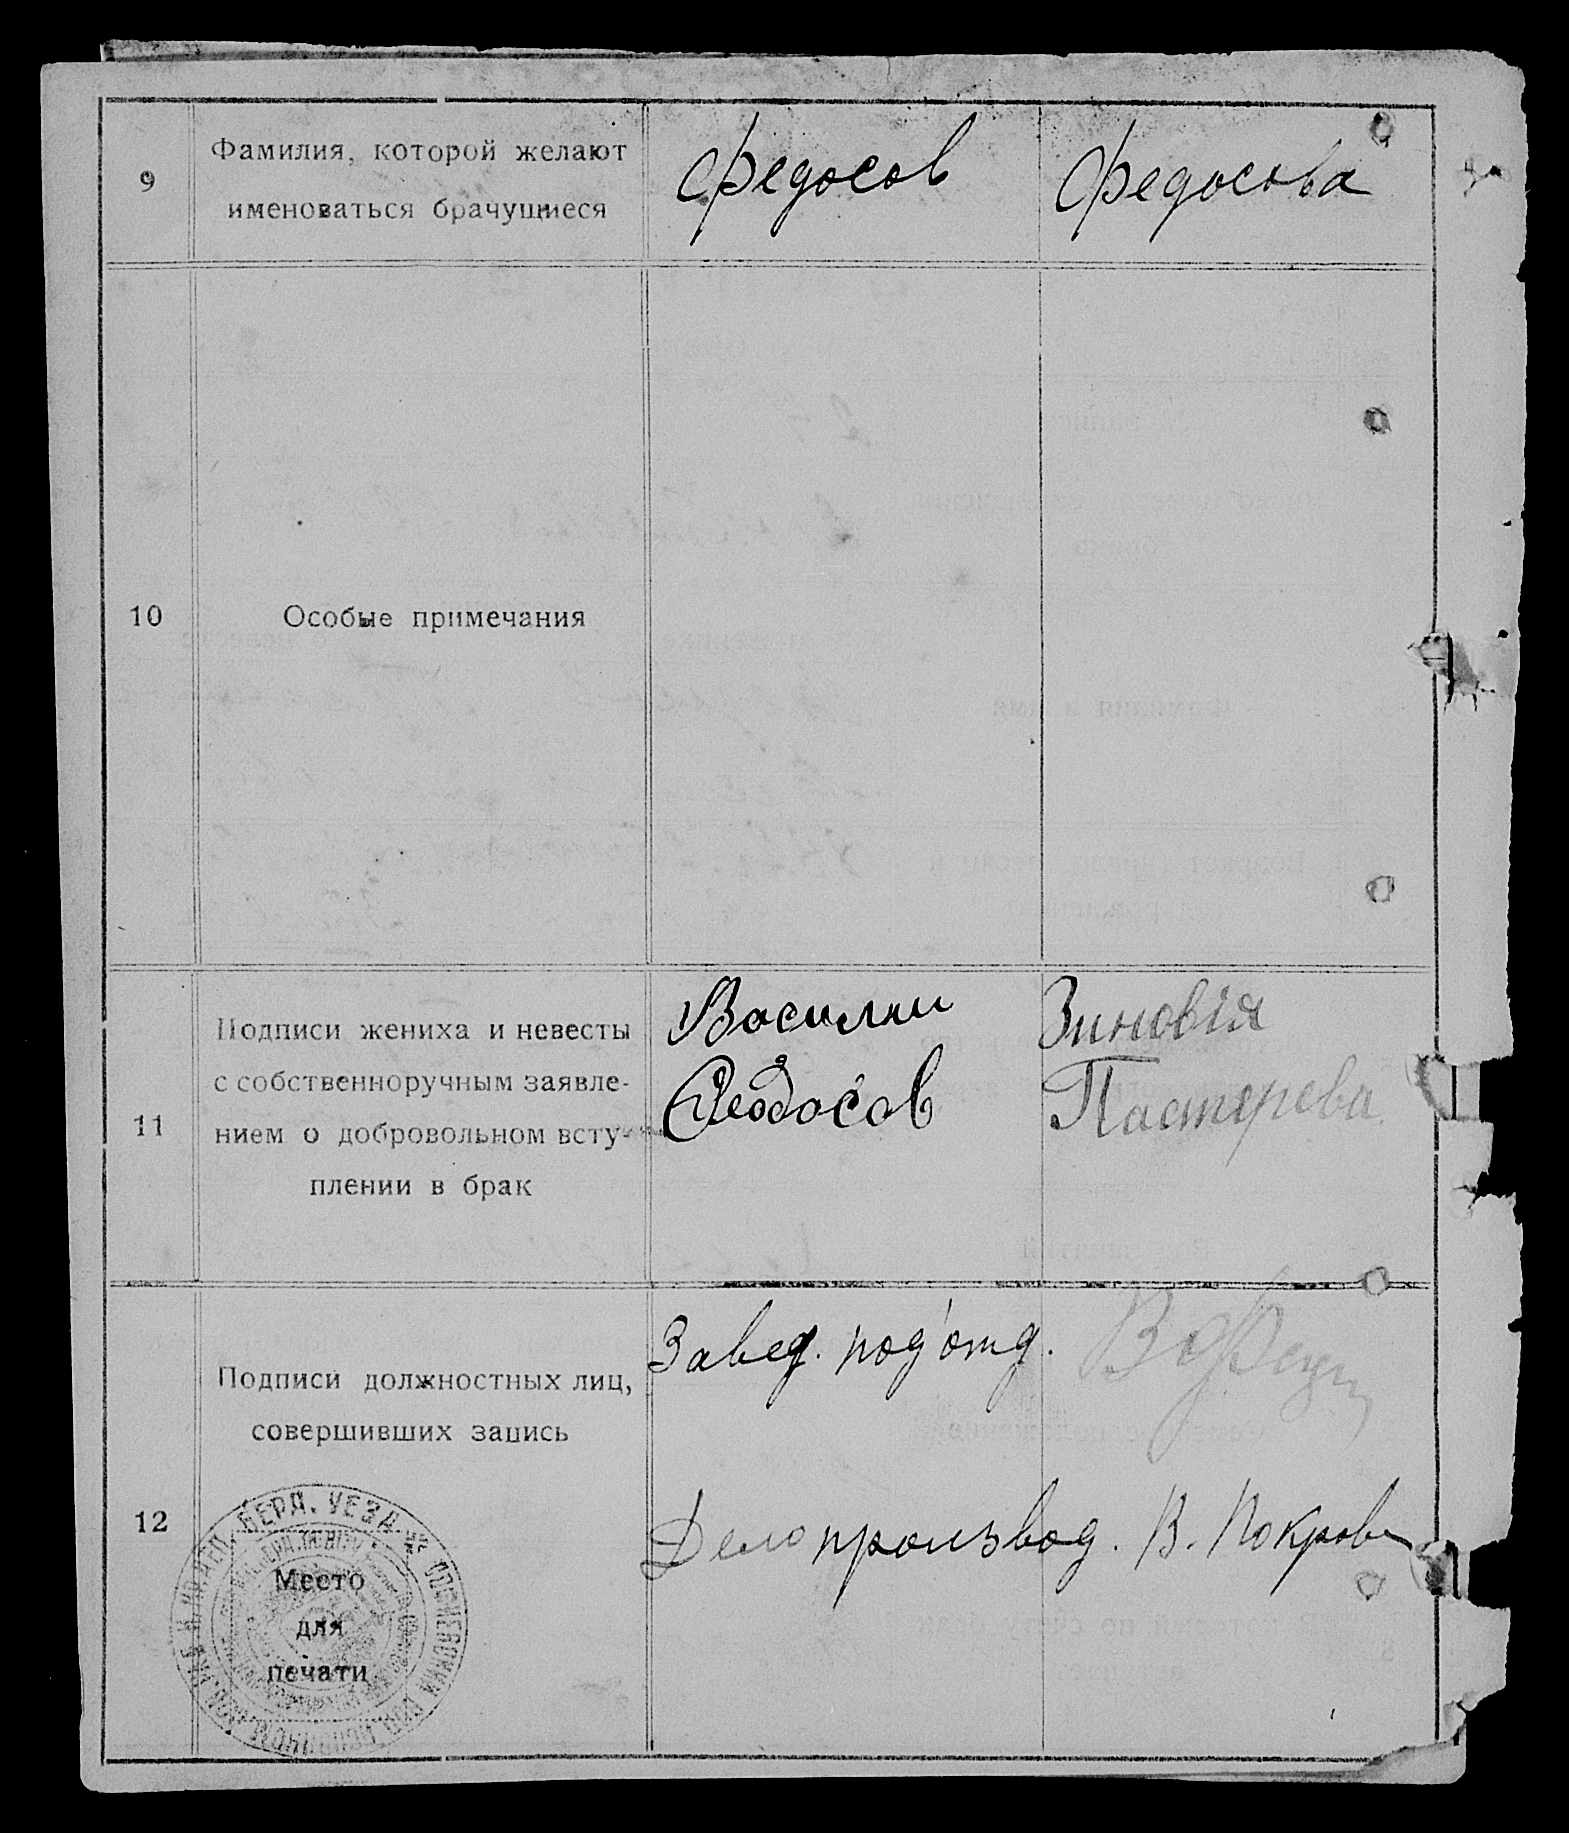 9
Фамилия, которой желают
именоваться брачущиеся
Федосов
Федосова
10
Особые примечания
11
Подписи жениха и невесты
с собственноручным заявле-
нием о добровольном всту-
плении в брак
Василии
Федосов
Зиновія
Пастерева
12
Подписи должностных лиц,
совершивших запись
Завед. под'отд.
Делопроизвод. В. Покров
БЕРД. УЕЗД.
Место
для
печати